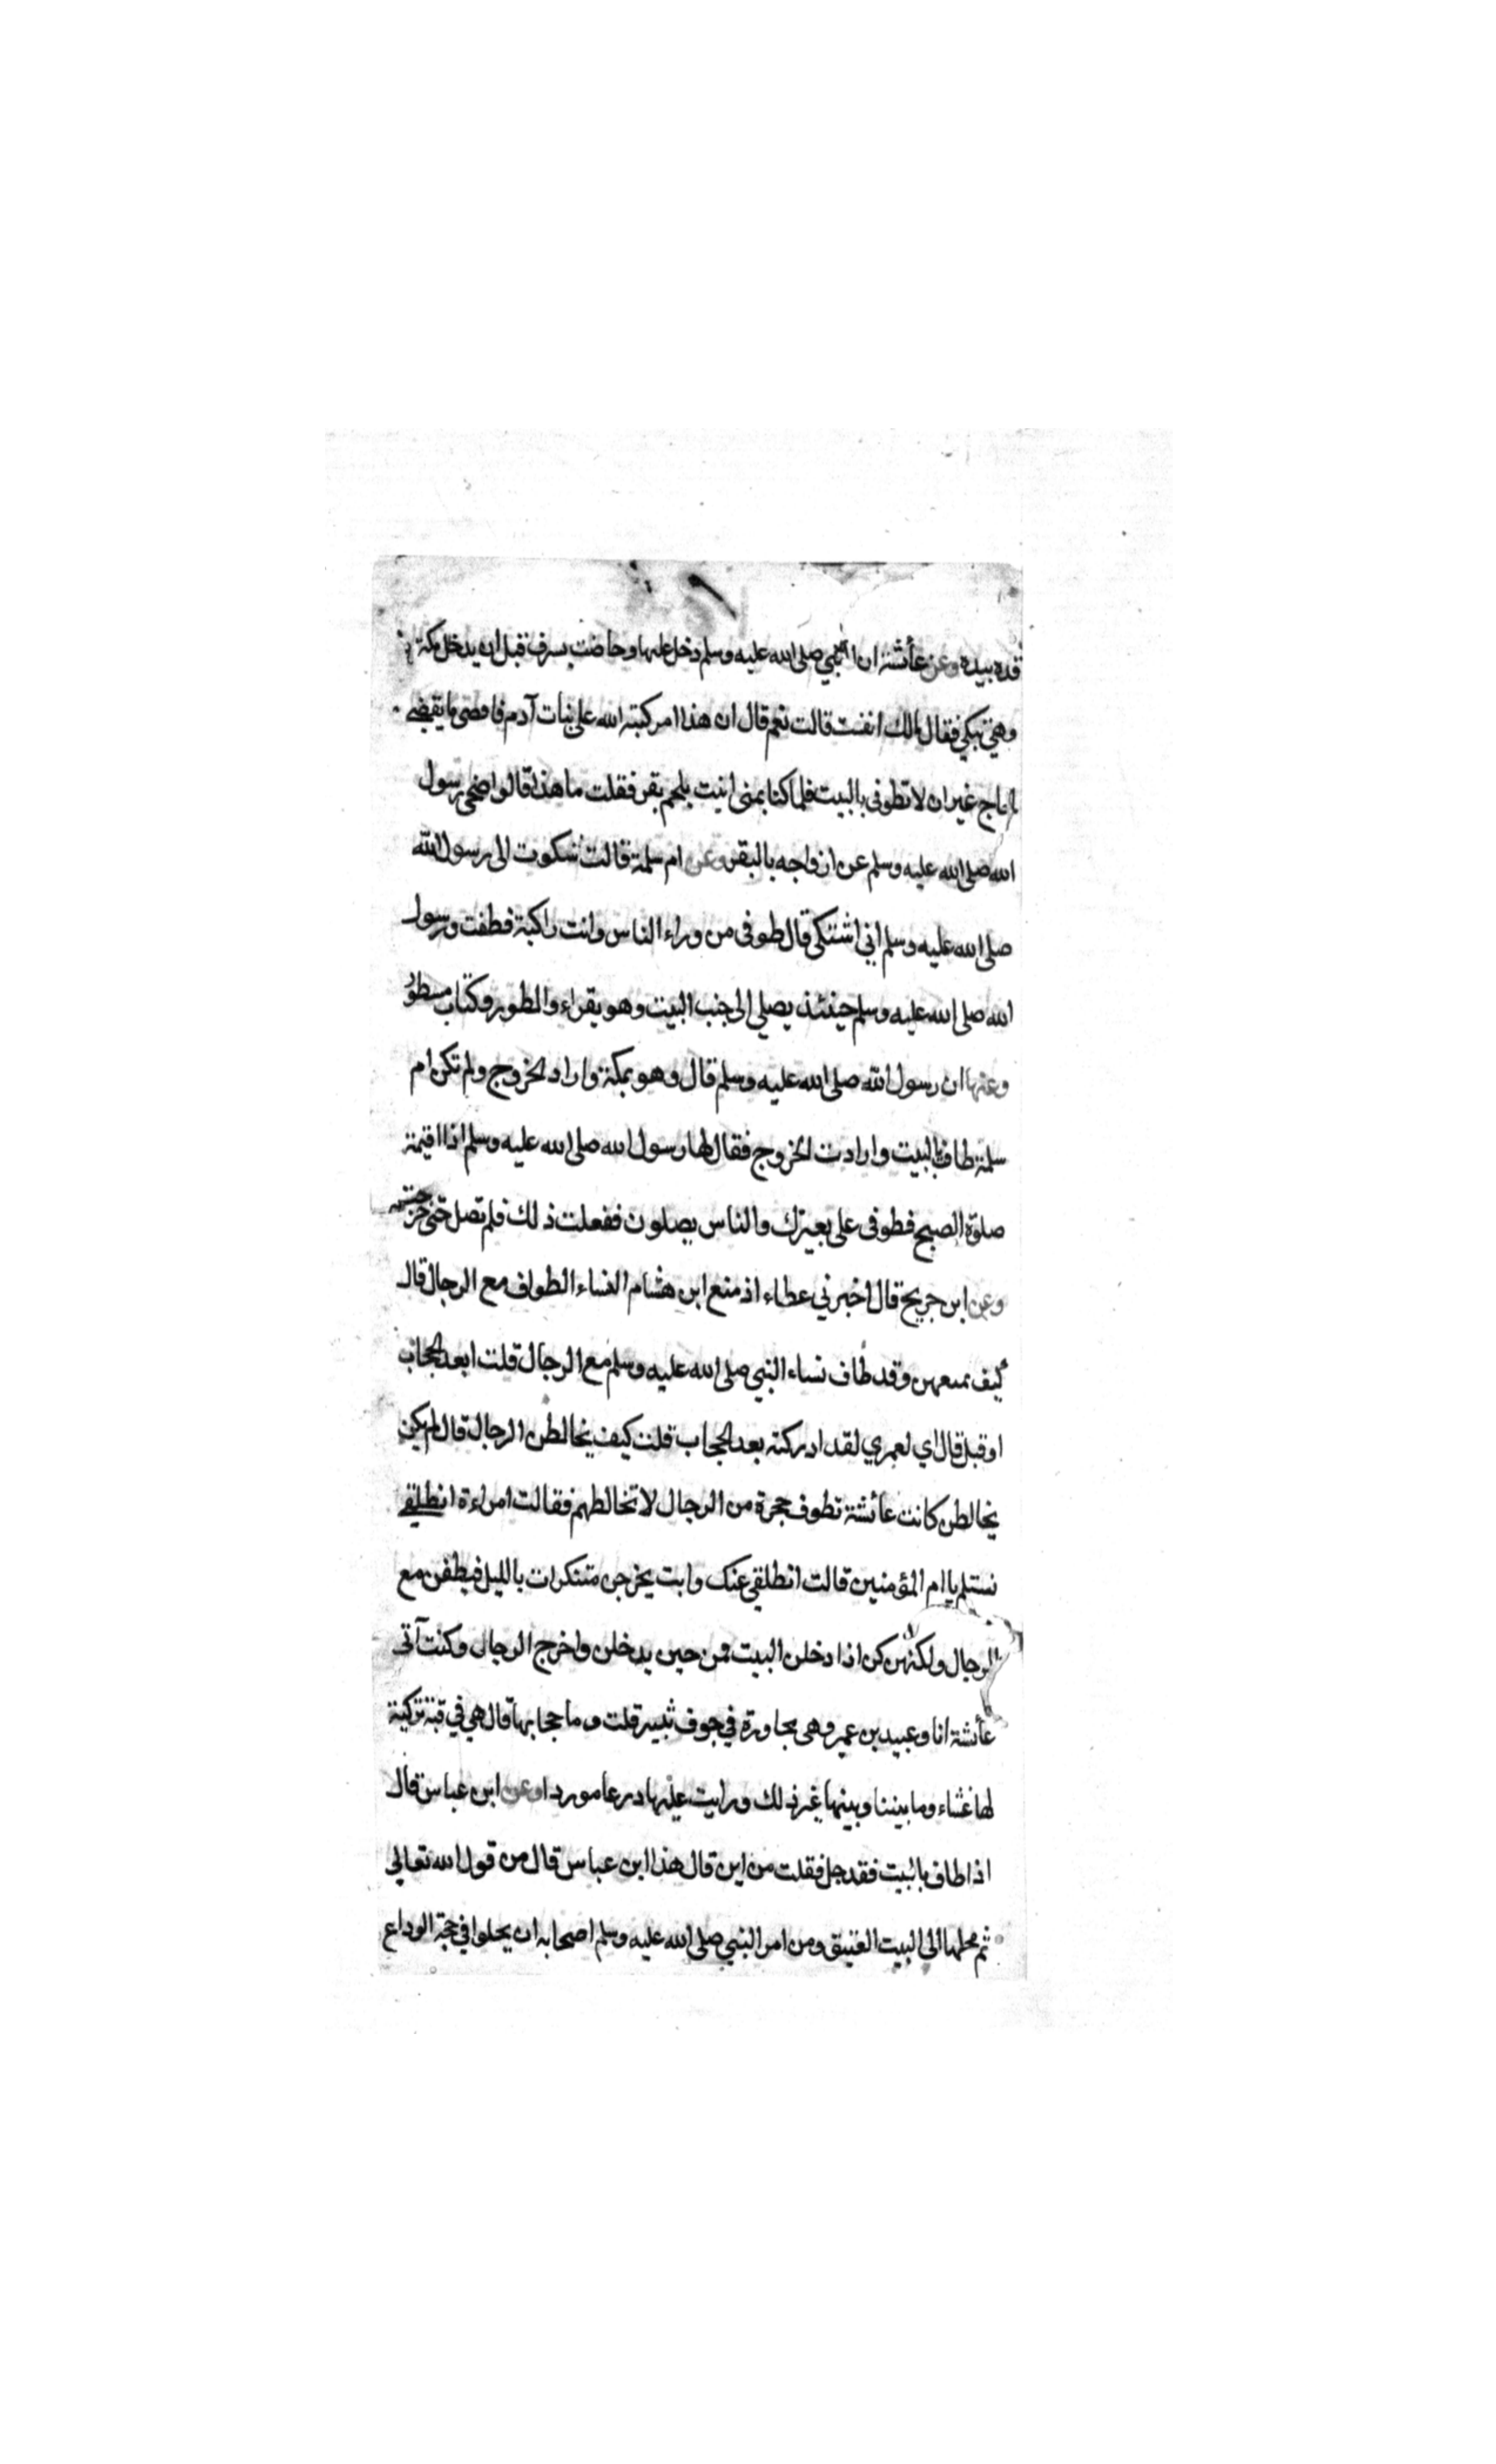 قده بيده وعن عائشة ان النبي صلى الله عليه وسلم دخل عليها وحاضت بسرف قبل ان يدخل مكة
وهي تبكي فقال مالك انفست قالت نعم قال ان هذا امر كتبه الله على بنات آدم فاقضي ما يقضي
الحاج غير ان لا تطوفي بالبيت فلما كنا بمنى اتيت بلحم بقر فقلت ما هذا قالوا ضحى رسول
الله صلى الله عليه وسلم عن ازواجه بالبقر وعن ام سلمة قالت شكوت الى رسول الله
صلى الله عليه وسلم اني اشتكي قال طوفي من وراء الناس وانت راكبة فطفت ورسول
الله صلى الله عليه وسلم حينئذ يصلي الى جنب البيت وهو يقراء والطور وكتاب مسطور
وعنها ان رسول الله صلى الله عليه وسلم قال وهو بمكة واراد الخروج ولم تكن ام
سلمة طافت بالبيت وارادت الخروج فقال لها رسول الله صلى الله عليه وسلم اذا اقيمة
صلوة الصبح فطوفي على بعيرك والناس يصلون ففعلت ذلك فلم تصل حتى خرجت
وعن ابن جريج قال اخبرني عطاء اذ منع ابن هشام النساء الطواف مع الرجال قال
كيف تمنعهن وقد طاف نساء النبي صلى الله عليه وسلم مع الرجال قلت ابعد الحجاب
او قبل قال اي لعمري لقد ادركته بعد الحجاب قلت كيف يخالطن الرجال قال لم يكن
يخالطن كانت عائشة تطوف حجرة من الرجال لا تخالطهم فقالت امراءة انطلقي
نستلم يا ام المؤمنين قالت انطلقي عنك وابت يخرجن متنكرات بالليل فيطفن مع
الرجال ولكنهن كن اذا دخلن البيت قمن حين يدخلن واخرج الرجال وكنت آتى
عائشة انا وعبيد بن عمير وهي مجاورة في جوف ثبير قلت وما حجابها قال هي في قبة تركية
لها غشاء وما بيننا وبينها غير ذلك ورايت عليها درعا موردا وعن ابن عباس قال
اذا طاف بالبيت فقد حل فقلت من اين قال هذا ابن عباس قال من قول الله تعالى
ثم محلها الى البيت العتيق ومن امر النبي صلى الله عليه وسلم اصحابه ان يحلوا في حجة الوداع